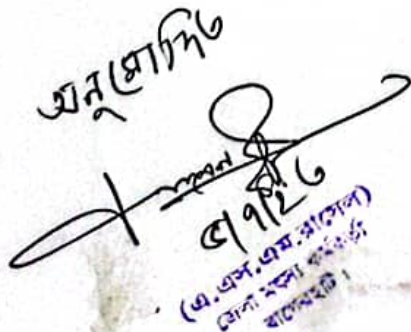 অনুমোদিত
৫/৭/২৩
(এ.এস.এম.রাসেল)
জেলা মৎস্য কর্মকর্তা
বাগেরহাট।